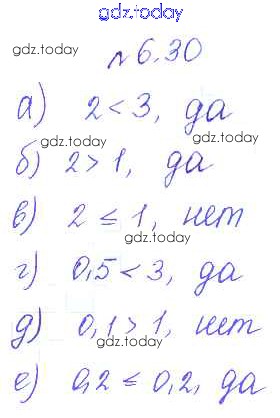 gdz.today
gdz.today gdz.today
№6.30
а) 2 < 3, да
gdz.today gdz.today
б) 2 > 1, да
в) 2 ≤ 1, нет
gdz.today
г) 0,5 < 3, да
д) 0,1 > 1, нет
gdz.today gdz.today
е) 0,2 ≤ 0,2, да